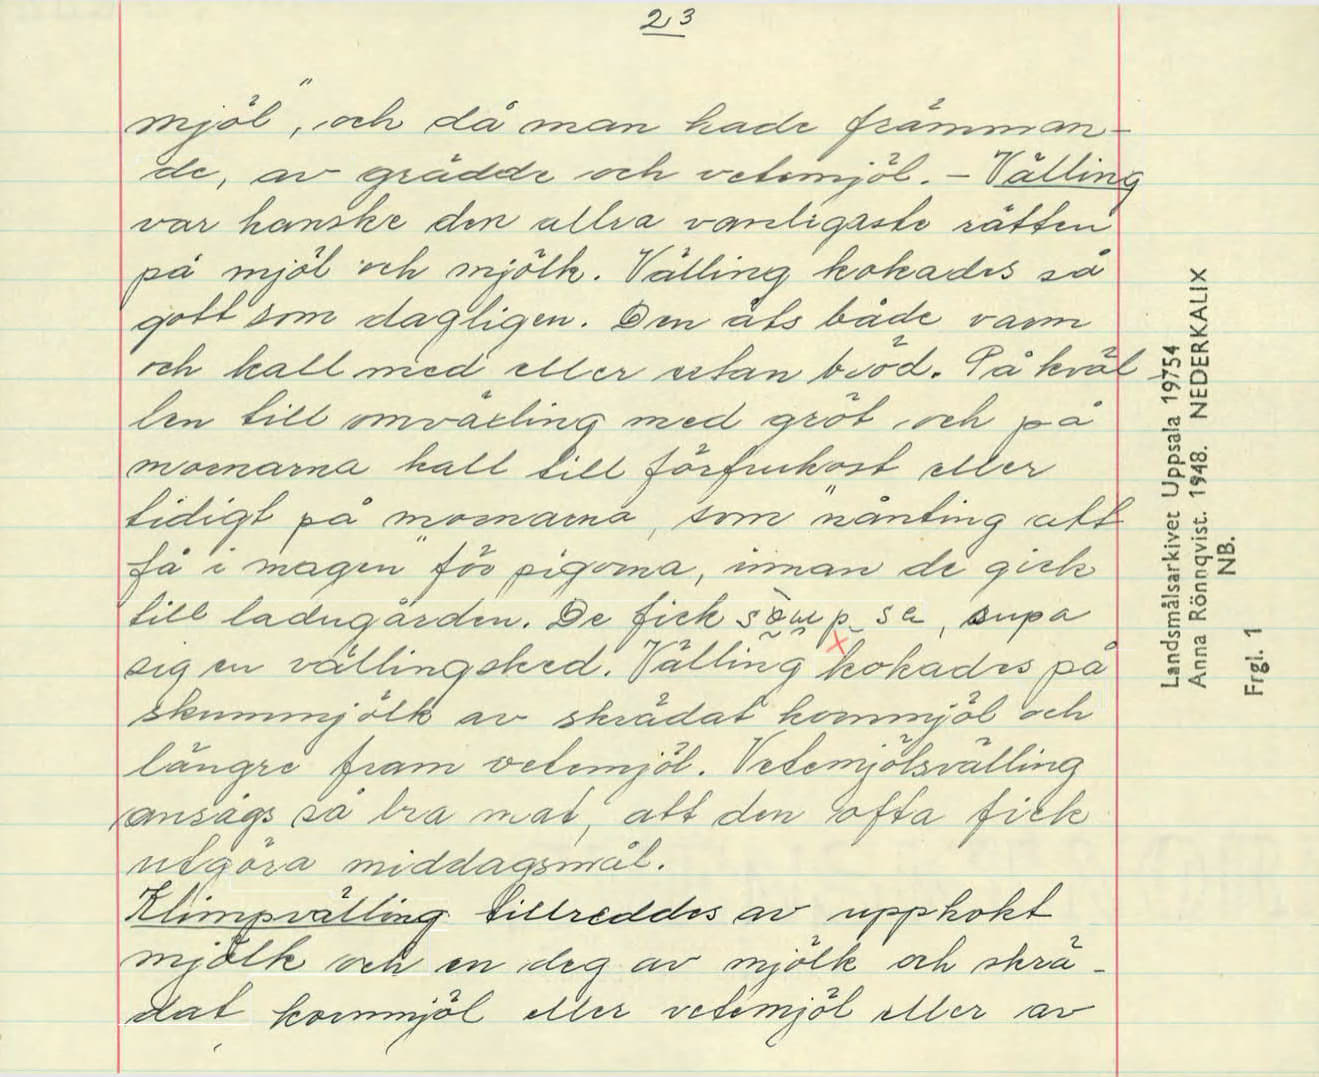 23
mjöl", och då man hade främman-
de, av grädde och vetemjöl. - Välling
var kanske den allra vanligaste rätten
på mjöl och mjölk. Välling kokades så
gott som dagligen. Den åts både varm
och kall med eller utan bröd. På kväl
len till omväxling med gröt och på
mornarna kall till förfrukost eller
tidigt på mornarna, som "nånting att
få i magen" för pigorna, innan de gick
till ladugården. De fick , supa
sig en vällingsked. Välling kokades på
skummjölk av skrädat kornmjöl och
längre fram vetemjöl. Vetemjölsvälling
ansågs så bra mat, att den ofta fick
utgöra middagsmål.
Klimpvälling tillreddes av uppkokt
mjölk och en deg av mjölk och skrä-
dat kornmjöl eller vetemjöl eller av
Landsmålsarkivet Uppsala 19754
Anna Rönnqvist. 1948. NEDERKALIX
NB.
Frgl. 1